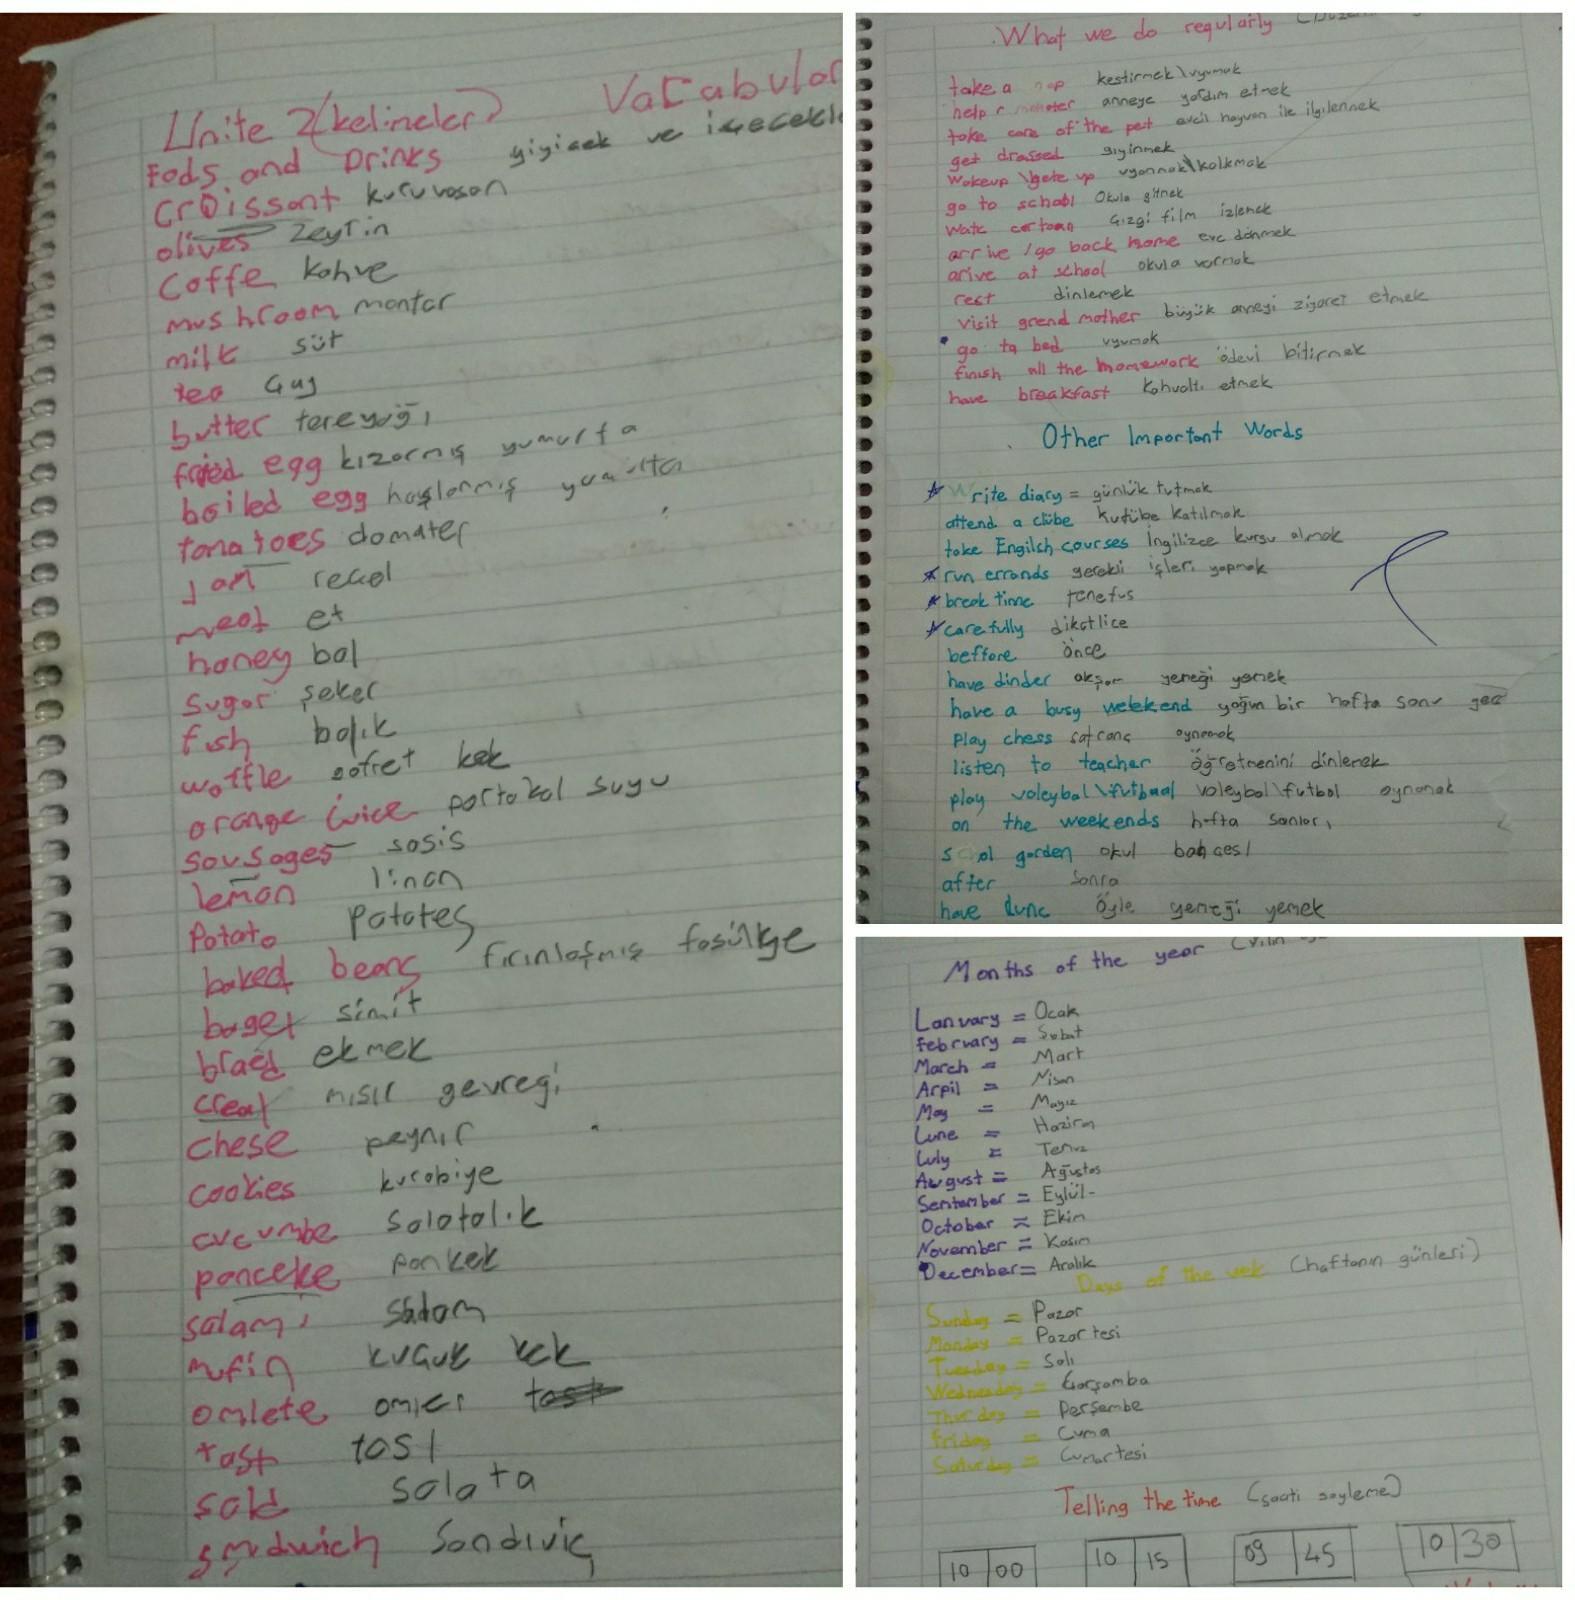 Unite 2 (kelimeler) Vocabular
Fods and Drinks yiyicek ve içecekle
Croissant kuruvasan
olives zeytin
Coffe kahve
mushroom mantar
milk süt
tea çay
butter tereyağı
fried egg kızarmış yumurta
boiled egg haşlanmış yumurta
tomatoes domates
Jam recel
meat et
honey bal
sugar şeker
fısh balık
waffle gofret kek
orange juice portakal suyu
sausages sosis
lemon limon
Potato patates
baked beans fırınlaşmış fasülye
bagel simit
braed ekmek
creal mısır gevregi
Chese peynir
cookies kurabiye
cucumbe salatalık
panceke pankek
salami salam
mufin kucuk kek
omlete omlet
tast tost
sald salata
sandwich sandiviç
What we do regularly
take a nap kestirmek\uyumak
help mother anneye yardım etmek
take care of the pet evcil hayvan ile ilgilenmek
get drassed giyinmek
Wakeup \gete up uyanmak\kalkmak
go to school Okula gitmek
watc cartoan Çizgi film izlemek
arrive /go back home eve dönmek
arive at school okula varmak
rest dinlemek
visit grend mother büyük anneyi ziyaret etmek
go to bed uyumak
finish all the homework ödevi bitirmek
have breakfast kahvaltı etmek
Other Important Words
Write diary = günlük tutmak
attend a clübe kulübe katılmak
take Engilsh courses İngilizce kursu almak
run errands gerekli işleri yapmak
break time tenefus
carefully dikatlice
beffore önce
have dinder akşam yemeği yemek
have a busy weekend yoğun bir hafta sonu geç
Play chess satranç oynamak
listen to teacher öğretmenini dinlemek
play voleybal\futbaal voleybol\futbol oynamak
on the weekends hafta sonları
garden okul bahcesi
after sonra
have lunc öyle yemeği yemek
Months of the year
Lanuary = Ocak
February = Şubat
March = Mart
Arpil = Nisan
May = Mayız
Lune = Haziran
Luly = Temuz
August = Ağustos
Semtember = Eylül
October = Ekim
November = Kasım
December = Aralık
Days of the wek (haftanın günleri)
Sunday = Pazar
Monday = Pazartesi
Tuesday = Salı
Wednesday = Çarşamba
Thurday = Perşembe
Friday = Cuma
Saturday = Cumartesi
Telling the time (saati söyleme)
10 00 10 15 09 45 10 30